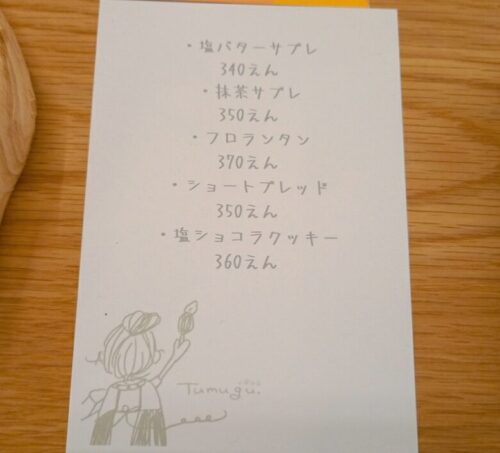 ・塩バターサブレ
340えん
・抹茶サブレ
350えん
・フロランタン
370えん
・ショートブレッド
350えん
・塩ショコラクッキー
360えん
Tumugu.